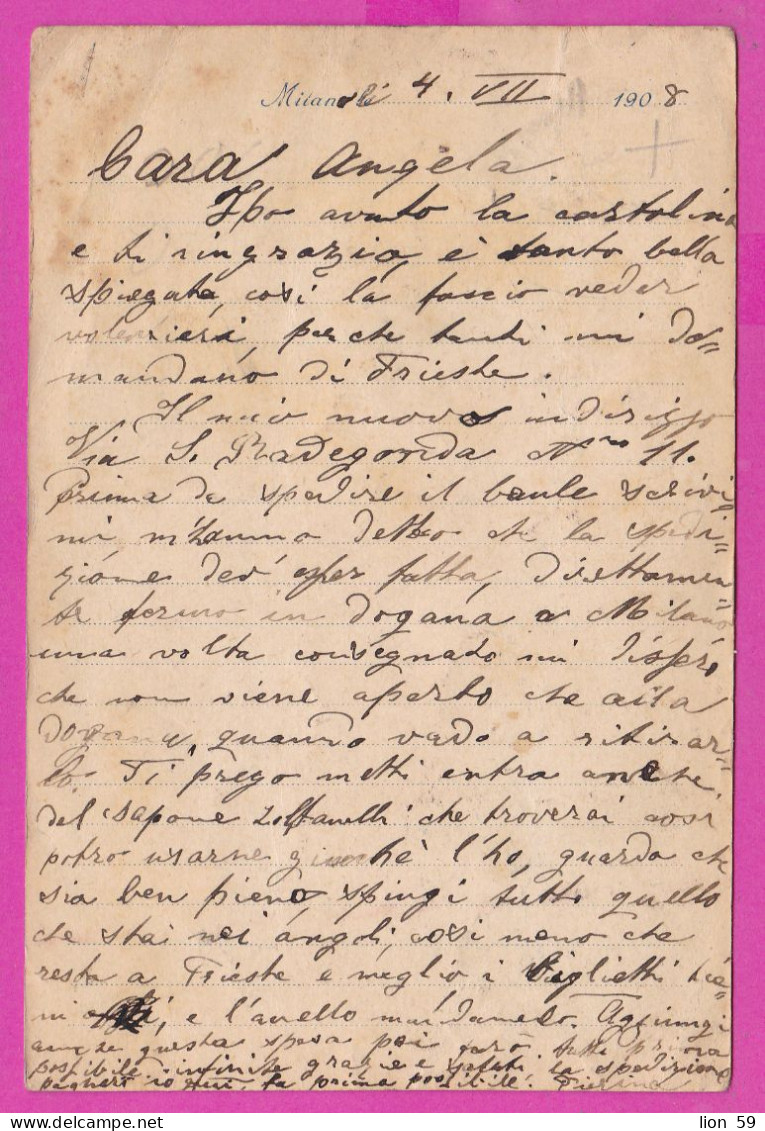 Milano li 4. VII 1908
Cara Angela.
Ho avuto la cartolina
e ti ringrazio, è tanto bella
spiegata, così la faccio veder
volentieri, perche tanti mi do=
mandano di Trieste.
Il mio nuovo indirizzo
Via S. Radegonda Nro 11.
Prima de spedire il baule scrivi
mi m'hanno detto che la spedi=
zione dev' esser fatta, direttamen=
te fermo in dogana a Milano
una volta consegnado mi dissero
che non viene aperto che alla
dogana, quando vado a ritirar=
lo. Ti prego metti entra anche
del sapone zolfanelli che troverai così
potro usarne giacchè l'ho, guarda che
sia ben pieno spingi tutto quello
che stai nei angoli, cosi meno che
resta a Trieste e meglio i biglietti tie=
ni, e l'anello mandamelo. Aggiungi
anche questa spesa poi farò tutto prima
possibile infinite grazie e saluti la spedizione
pagherò io qui, la prima possibile. Pierina
lion 59